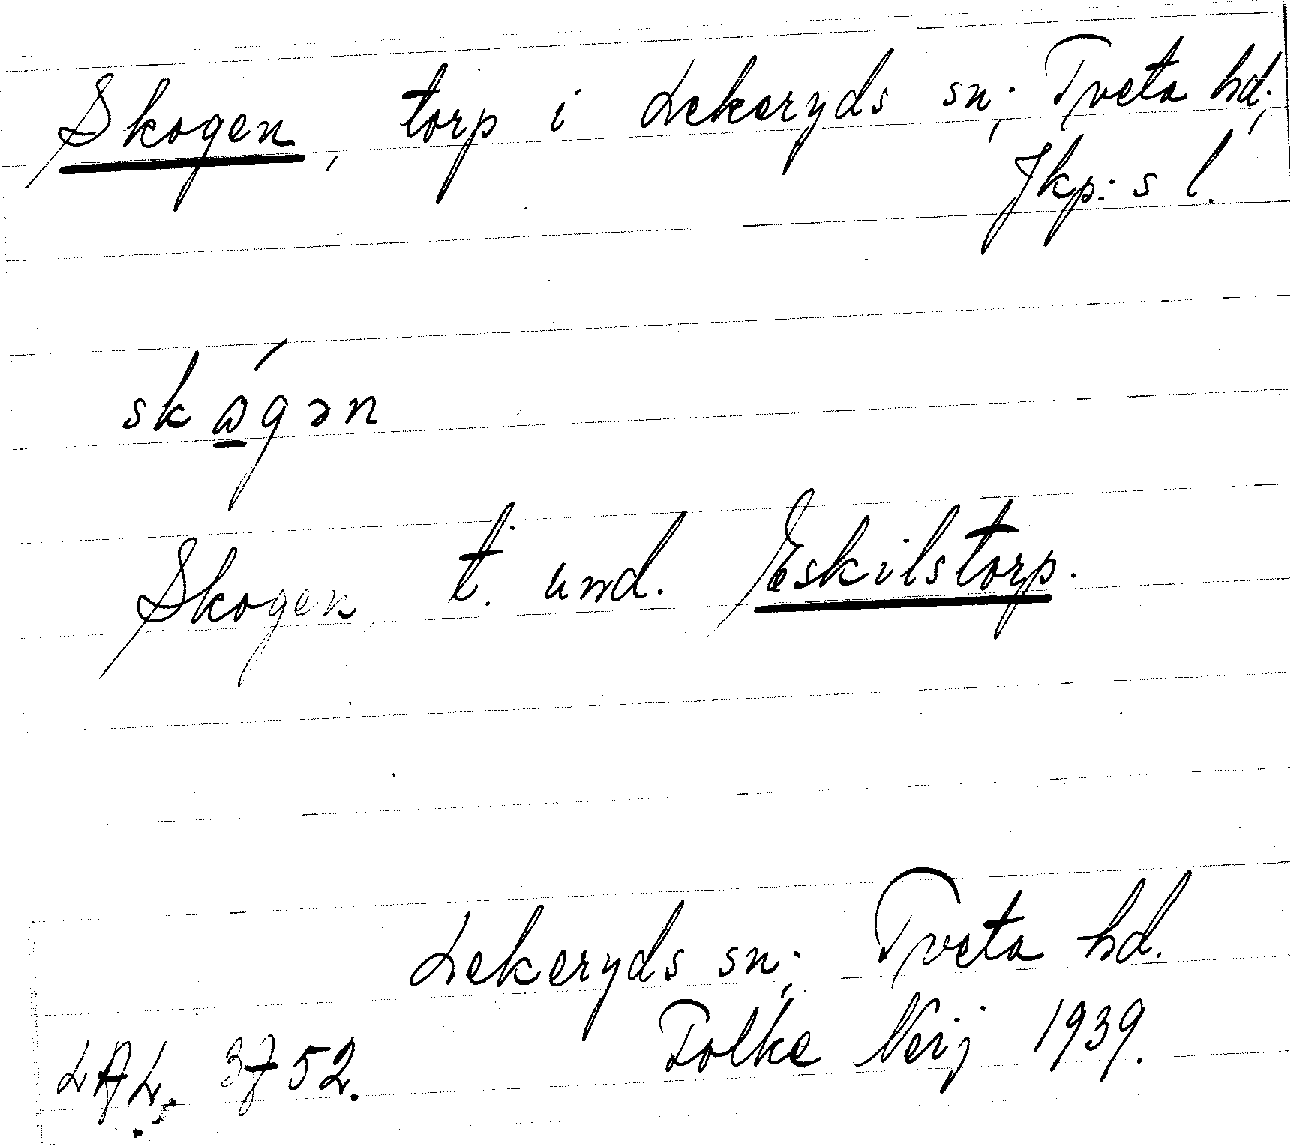 Skogen, torp i Lekeryds sn; Tveta hd;
Jkp:s l.
skógən
Skogen t. und. Eskilstorp.
Lekeryds sn; Tveta hd.
LAL. 3752. Folke Neij 1939.